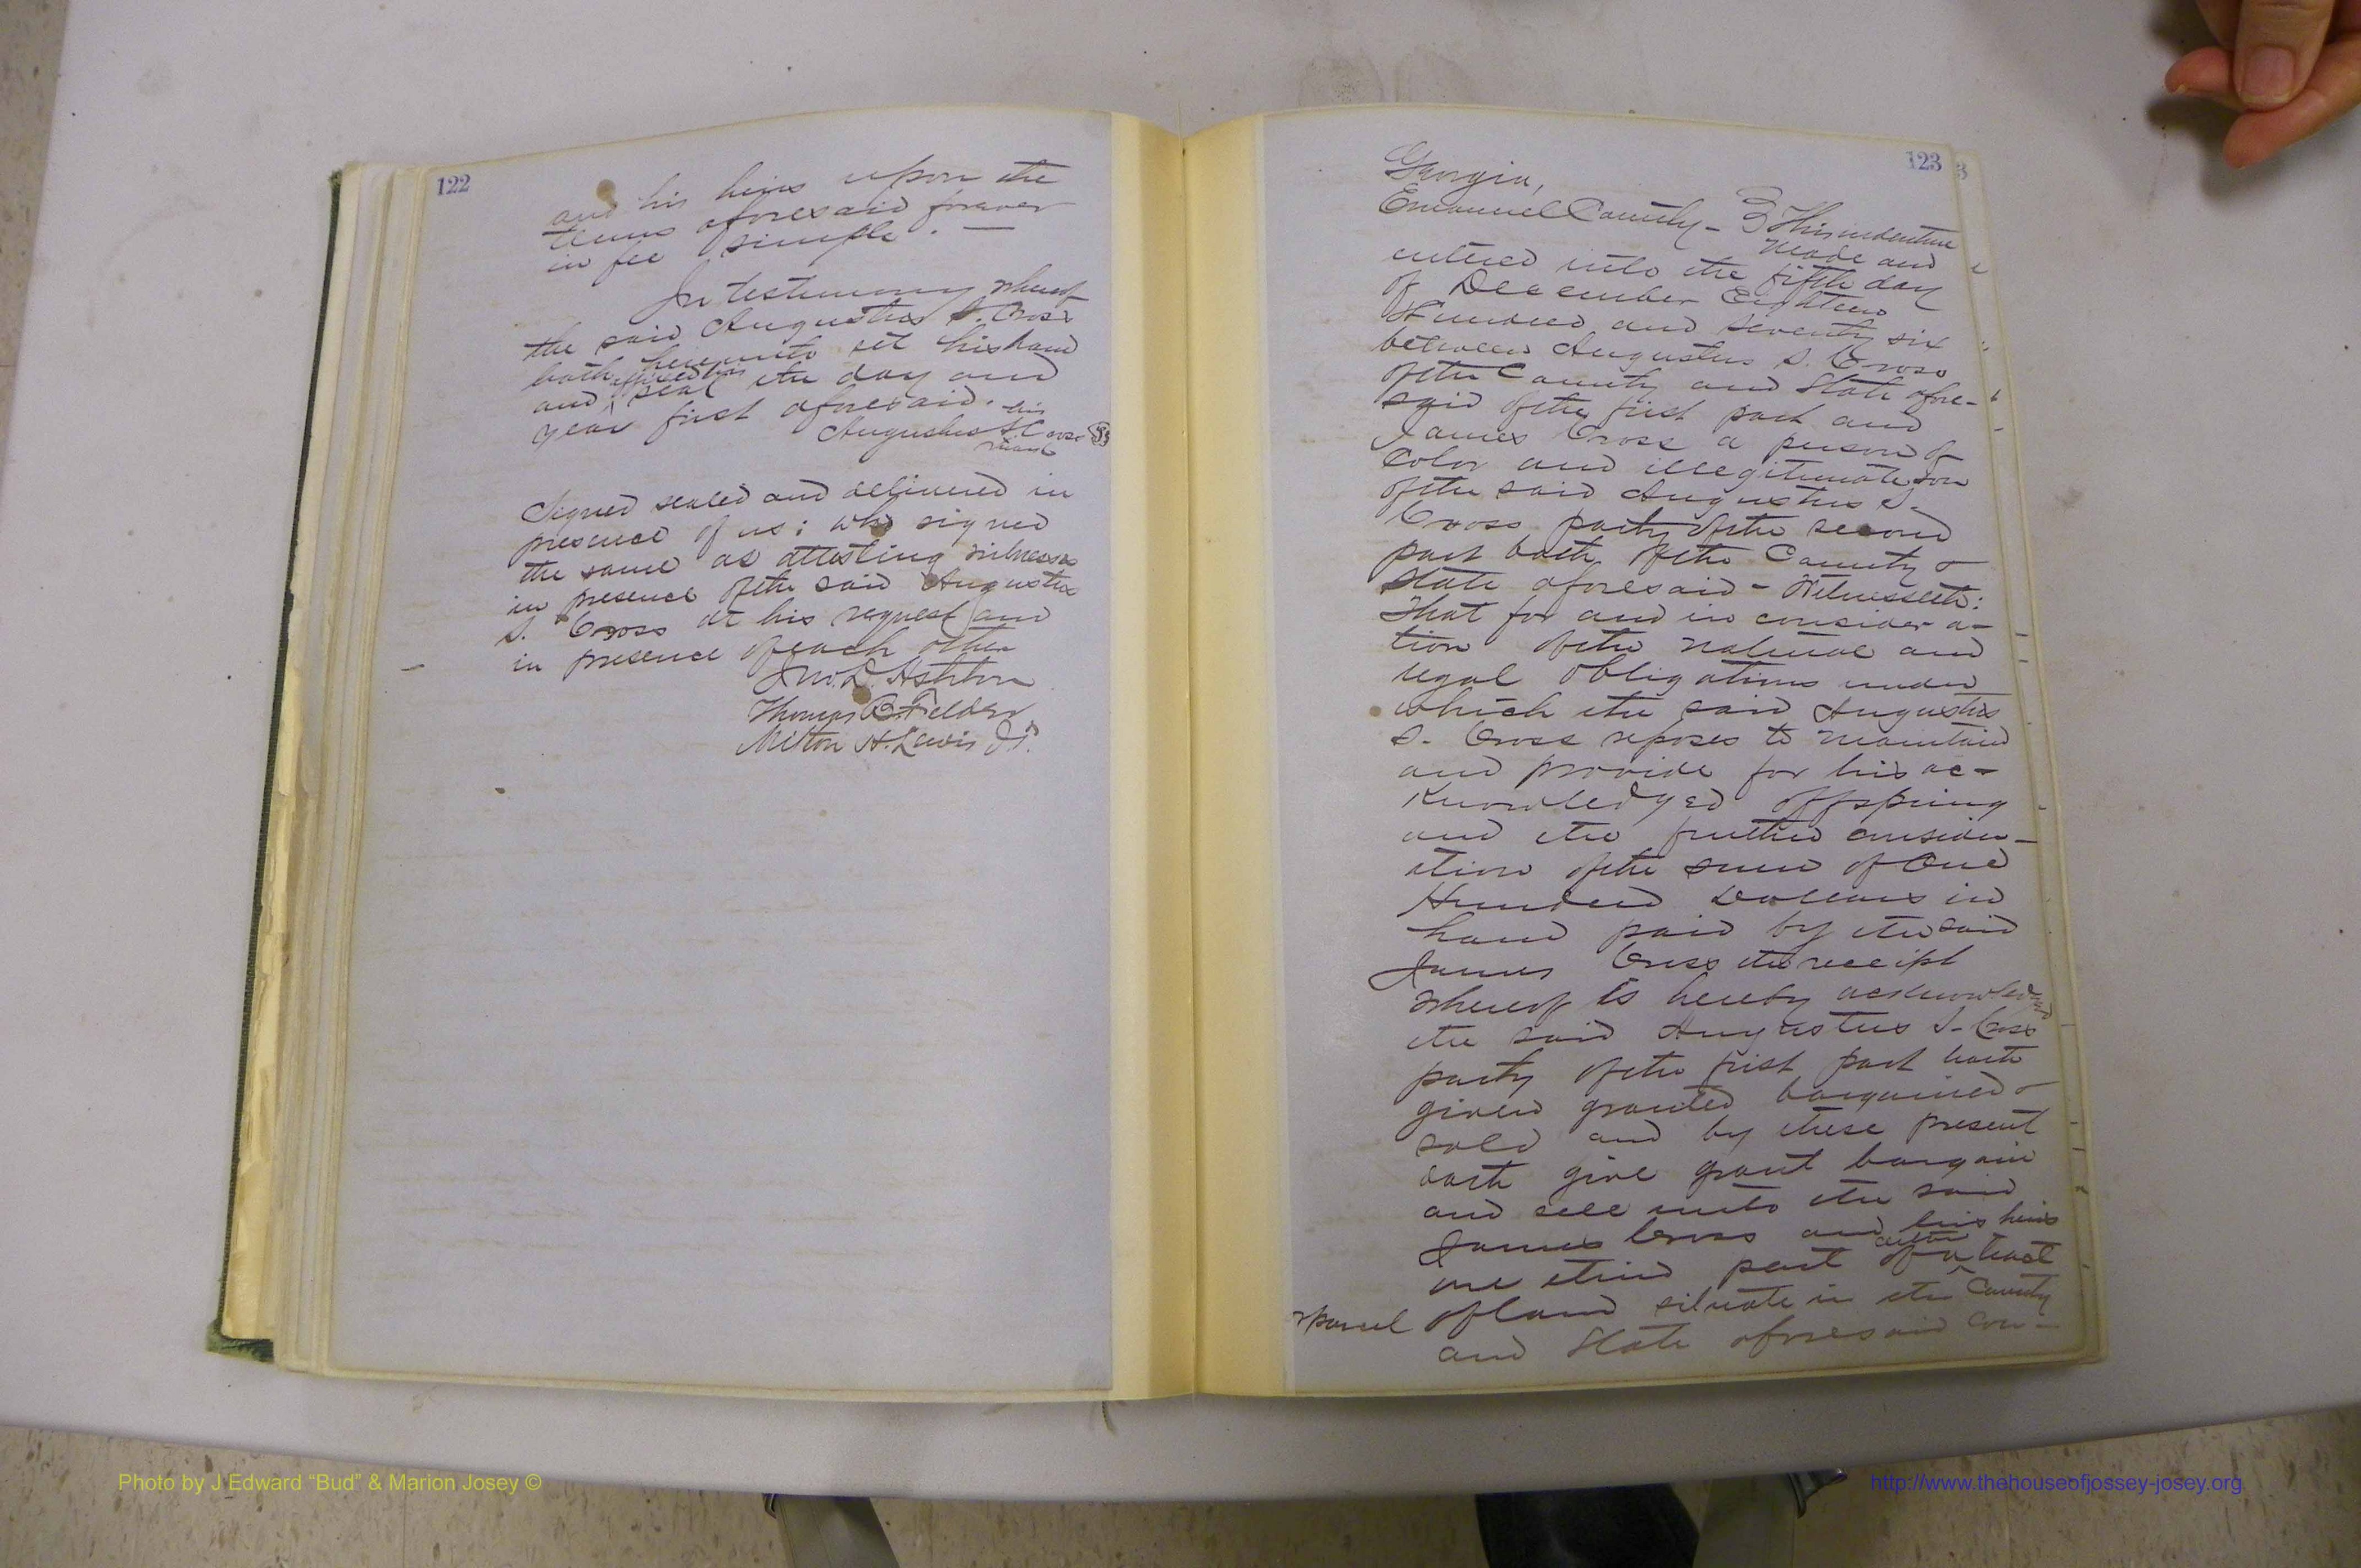 122
and his heirs upon the
terms aforesaid forever
in fee simple. —
In testimony whereof
the said Augustus S. Cross
hath hereunto set his hand
affixed his
and seal the day and
year first aforesaid.
his
Augustus S Cross
mark
Signed sealed and delivered in
presence of us; who signed
the same as attesting witnesses
in presence of the said Augustus
S. Cross at his request and
in presence of each other
Jno. D. Ashton
Thomas B Fielder
Milton H. Lewis J.P.
123
Georgia,
Emanuel County – } This indenture
made and
entered into the fifth day
of December Eighteen
Hundred and seventy six
between Augustus S. Cross
of the County and State afore-
said of the first part and
James Cross a person of
Color and illegitimate son
of the said Augustus S.
Cross party of the second
part both of the County &
State aforesaid – Witnesseth:
That for and in consider a-
tion of the natural and
legal obligations under
which the said Augustus
S. Cross reposes to maintain
and provide for his ac-
knowledged offspring
and the further consider-
ation of the sum of One
Hundred Dollars in
hand paid by the said
James Cross the receipt
whereof is hereby acknowledged
the said Augustus S. Cross
party of the first part hath
given granted bargained &
sold and by these present
doth give grant bargain
and sell unto the said
James Cross and his heirs
one third part of a tract
or parcel of land situate in the County
and State aforesaid con-
Photo by J Edward “Bud” & Marion Josey ©
http://www.thehouseofjossey-josey.org